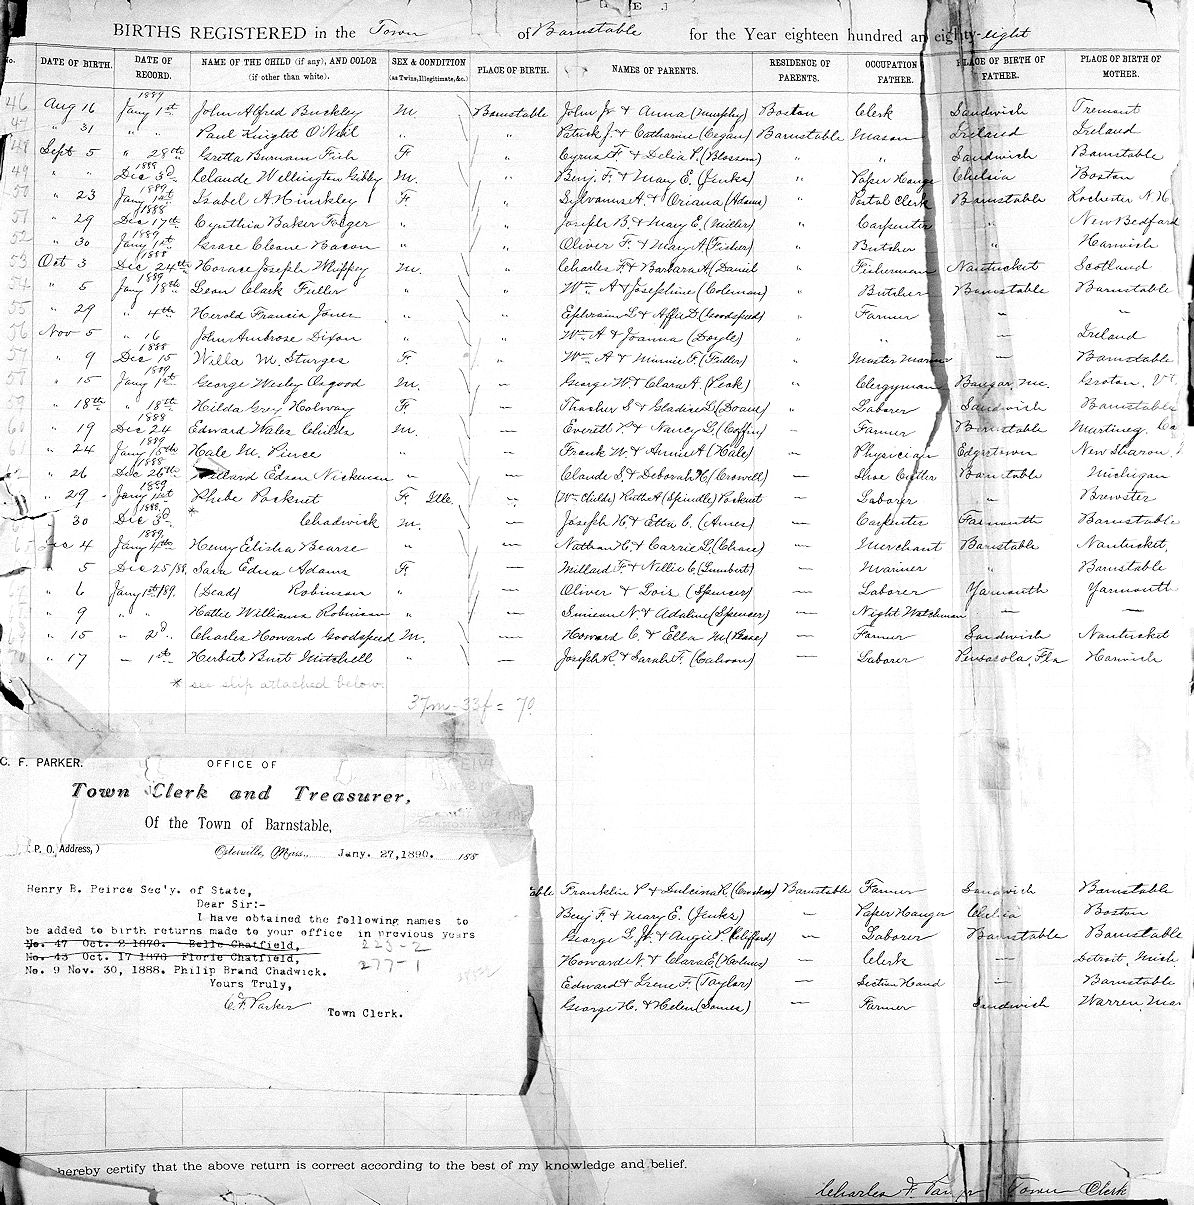 BIRTHS REGISTERED in the Town of Barnstable for the Year eighteen hundred and eighty-eight
No. DATE OF BIRTH. DATE OF RECORD. NAME OF THE CHILD (if any), AND COLOR (if other than white). SEX & CONDITION (as Twins, Illegitimate, &c.) PLACE OF BIRTH. NAMES OF PARENTS. RESIDENCE OF PARENTS. OCCUPATION FATHER. PLACE OF BIRTH OF FATHER. PLACE OF BIRTH OF MOTHER.
46 Aug 16 1889 Jany 1st John Alfred Buckley M. Barnstable John Jr & Anna (Murphy) Boston Clerk Sandwich Tremont
47 " 31 " " Paul Knight O'Neil " " Patrick J. & Catharine (Cegan) Barnstable Mason Ireland Ireland
48 Sept 5 " 28th Gretta Burnam Fish F " Cyrus F. & Delia P. (Blossom) " " Sandwich Barnstable
49 " " 1888 Dec 3d Claude Wellington Gibby M. " Benj. F. & Mary E. (Jenks) " Paper Hanger Chelsia Boston
50 " 23 1889 Jany 1st Isabel A Hinckley F " Sylvanus A. & Oriana (Adams) " Postal Clerk Barnstable Rochester N.H
51 " 29 1888 Dec 17th Cynthia Baker Folger " " Joseph B. & Mary E. (Miller) " Carpenter " New Bedford
52 " 30 1889 Jany 1st Grase Cleane Bacon " " Oliver F. & Mary A (Fisher) " Butcher " Harwich
53 Oct 3 1888 Dec 24th Horace Joseph Whippey M. " Charles F. & Barbara A (Daniel " Fisherman Nantucket Scotland
54 " 5 1889 Jany 18th Leon Clark Fuller " " Wm A & Josephine (Coleman) " Butcher Barnstable Barnstable
55 " 29 " 4th Herold Francis Jones " " Ephraim L & Affie D. (Goodspeed) " Farmer — "
56 Nov 5 " 16 John Ambrose Dixon " " Wm A & Joanna (Doyle) " " — Ireland
57 " 9 1888 Dec 15 Willa M. Sturges F " Wm A & Minnie F. (Fuller) " Master Mariner — Barnstable
58 " 15 1889 Jany 1st George Wesley Osgood M. — George W & Clara A. (Peak) " Clergyman Bangor, Me. Groton, Vt.
59 " 18th " 18th Hilda Grey Holway F. — Thacher S & Gladice L (Doane) " Laborer Sandwich Barnstable
60 " 19 1888 Dec 24 Edward Wales Childs M. — Everett P. & Nancy L. (Coffin) — Farmer Barnstable Martinez, Ca
61 " 24 1889 Jany 15th Hale M. Pierce " — Frank W. & Annie A (Hale) — Physician Edgrtown New Sharon,
62 " 26 1888 Dec 26th Millard Edson Nickerson " — Claude S. & Deborah H (Crowell) — Shoe Cutter Barnstable Michigan
" 29 1889 Jany 1st Phebe Pocknet F Ille. " (Wm Childs) Ruth A (Spindle) Pocknet Laborer " Brewster
30 1888 Dec 3d * Chadwick M. — Joseph H. & Etta C. (Ames) — Carpenter Falmouth Barnstable
65 Dec 4 1889 Jany 4th Henry Elisha Bearse " — Nathan H. & Carrie L. (Chase) — Merchant Barnstable Nantucket,
" 5 Dec 25/88. Sara Edna Adams F. — Millard F. & Nellie C (Lumbert) — Mariner " Barnstable
67 " 6 Jany 1st/89. (Dead) Robinson " — Oliver & Lois (Spencer) — Laborer Yarmouth Yarmouth
" 9 " " Hattie Williams Robinson " — Simeon N. & Adaline (Spencer) — Night Watchman — —
69 " 15 " 2d Charles Howard Goodspeed M. — Howard C. & Ella M (Pease) — Farmer Sandwich Nantucket
70 " 17 — 1st Herbert Burt Mitchell " — Joseph R. & Sarah F. (Cahoon) — Laborer Pensacola, Fla Harwich
* see slip attached below.
37m - 33f = 70
C. F. PARKER.
OFFICE OF
Town Clerk and Treasurer,
Of the Town of Barnstable,
(P. O. Address,) Osterville, Mass., Jany. 27, 1890. 188
Henry B. Peirce Sec'y. of State,
Dear Sir:-
I have obtained the following names to
be added to birth returns made to your office in previous years
No. 47 Oct. 2 1870. Belle Chatfield, 223-2
No. 43 Oct. 17 1870 Florie Chatfield, 277-1
No. 9 Nov. 30, 1888. Philip Brand Chadwick.
Yours Truly,
C. F. Parker
Town Clerk.
able Franklin P. & Dulcina R. (Crocker) Barnstable Farmer Sandwich Barnstable
Benj F. & Mary E. (Jenks) — Paper Hanger Chelsia Boston
George L. Jr. & Angie P. (Clifford) — Laborer Barnstable Barnstable
Howard N. & Clara E. (Holmes) — Clerk — Detroit, Mich.
Edward & Irene F. (Taylor) — Section Hand — Barnstable
George H. & Helen (Somes) — Farmer Sandwich Warren, Mas
hereby certify that the above return is correct according to the best of my knowledge and belief.
Charles F. Parker Town Clerk